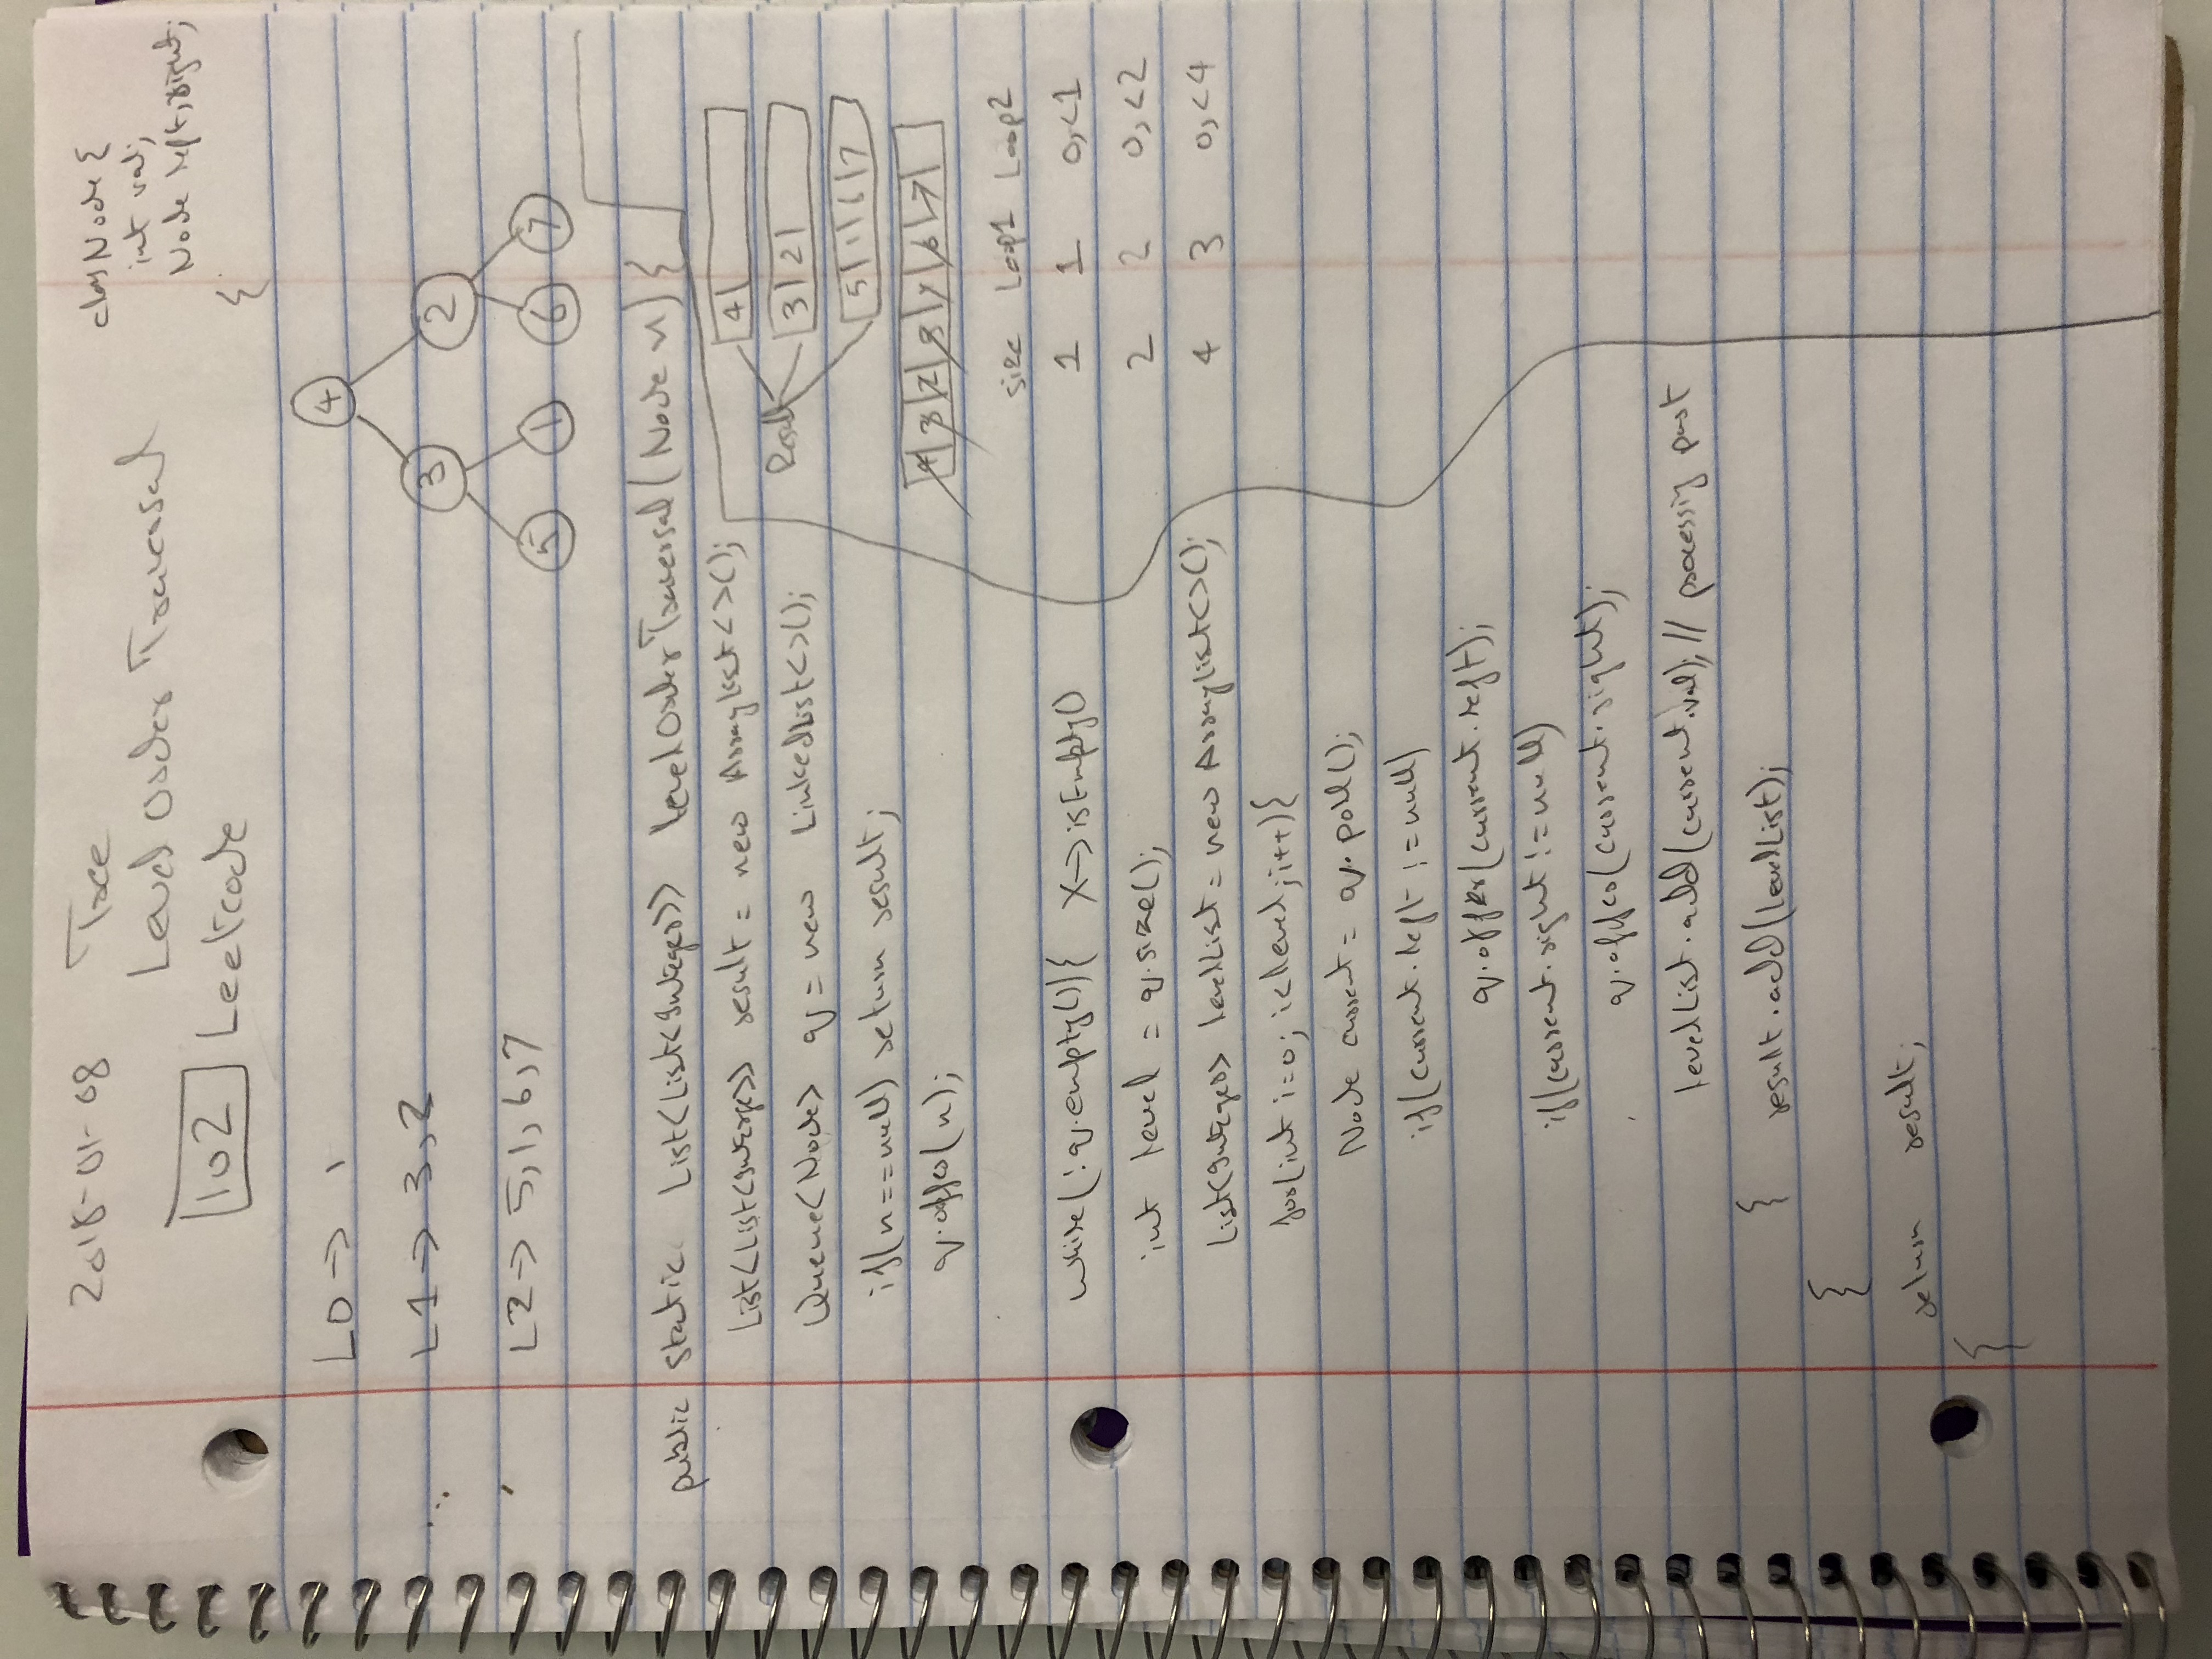 2018-01-08 Tree
Level Order Traversal
102 Leetcode
class Node {
int val;
Node left, right;
}
L0 -> 1
L1 -> 3, 2
L2 -> 5, 1, 6, 7
4
3 2
5 1 6 7
public static List<List<Integer>> levelOrderTraversal(Node n) {
List<List<Integer>> result = new ArrayList<>();
Queue<Node> q = new LinkedList<>();
if(n==null) return result;
q.offer(n);
while(!q.empty()){ X-> isEmpty()
int level = q.size();
List<Integer> levelList = new ArrayList<>();
for(int i=0; i<level; i++){
Node current = q.poll();
if(current.left != null)
q.offer(current.left);
if(current.right != null)
q.offer(current.right);
levelList.add(current.val); // processing part
} result.add(levelList);
}
return result;
}
Result
4
3 2
5 1 6 7
4 3 2 5 1 6 7
size Loop1 Loop2
1 1 0,<1
2 2 0,<2
4 3 0,<4